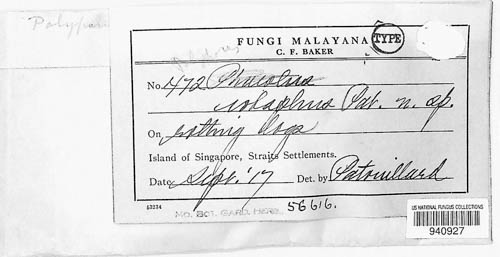 Polypor
FUNGI MALAYANA TYPE
C. F. BAKER
Polyporus
No. 472 Phaeolus
Pat. n. sp.
On rotting logs
Island of Singapore, Straits Settlements.
Date, Sept. '17 Det. by Patouillard
53234
MO. BOT. GARD. HERB.
56616.
US NATIONAL FUNGUS COLLECTIONS
940927